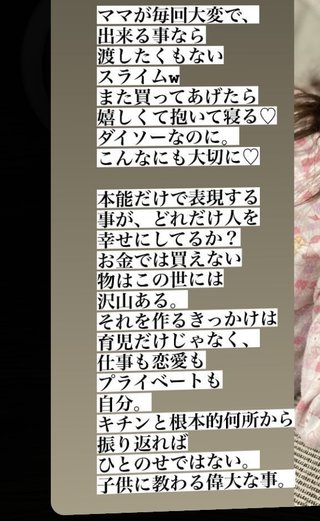 ママが毎回大変で、
出来る事なら
渡したくもない
スライムw
また買ってあげたら
嬉しくて抱いて寝る♡
ダイソーなのに。
こんなにも大切に♡
本能だけで表現する
事が、どれだけ人を
幸せにしてるか？
お金では買えない
物はこの世には
沢山ある。
それを作るきっかけは
育児だけじゃなく、
仕事も恋愛も
プライベートも
自分。
キチンと根本的何所から
振り返れば
ひとのせではない。
子供に教わる偉大な事。